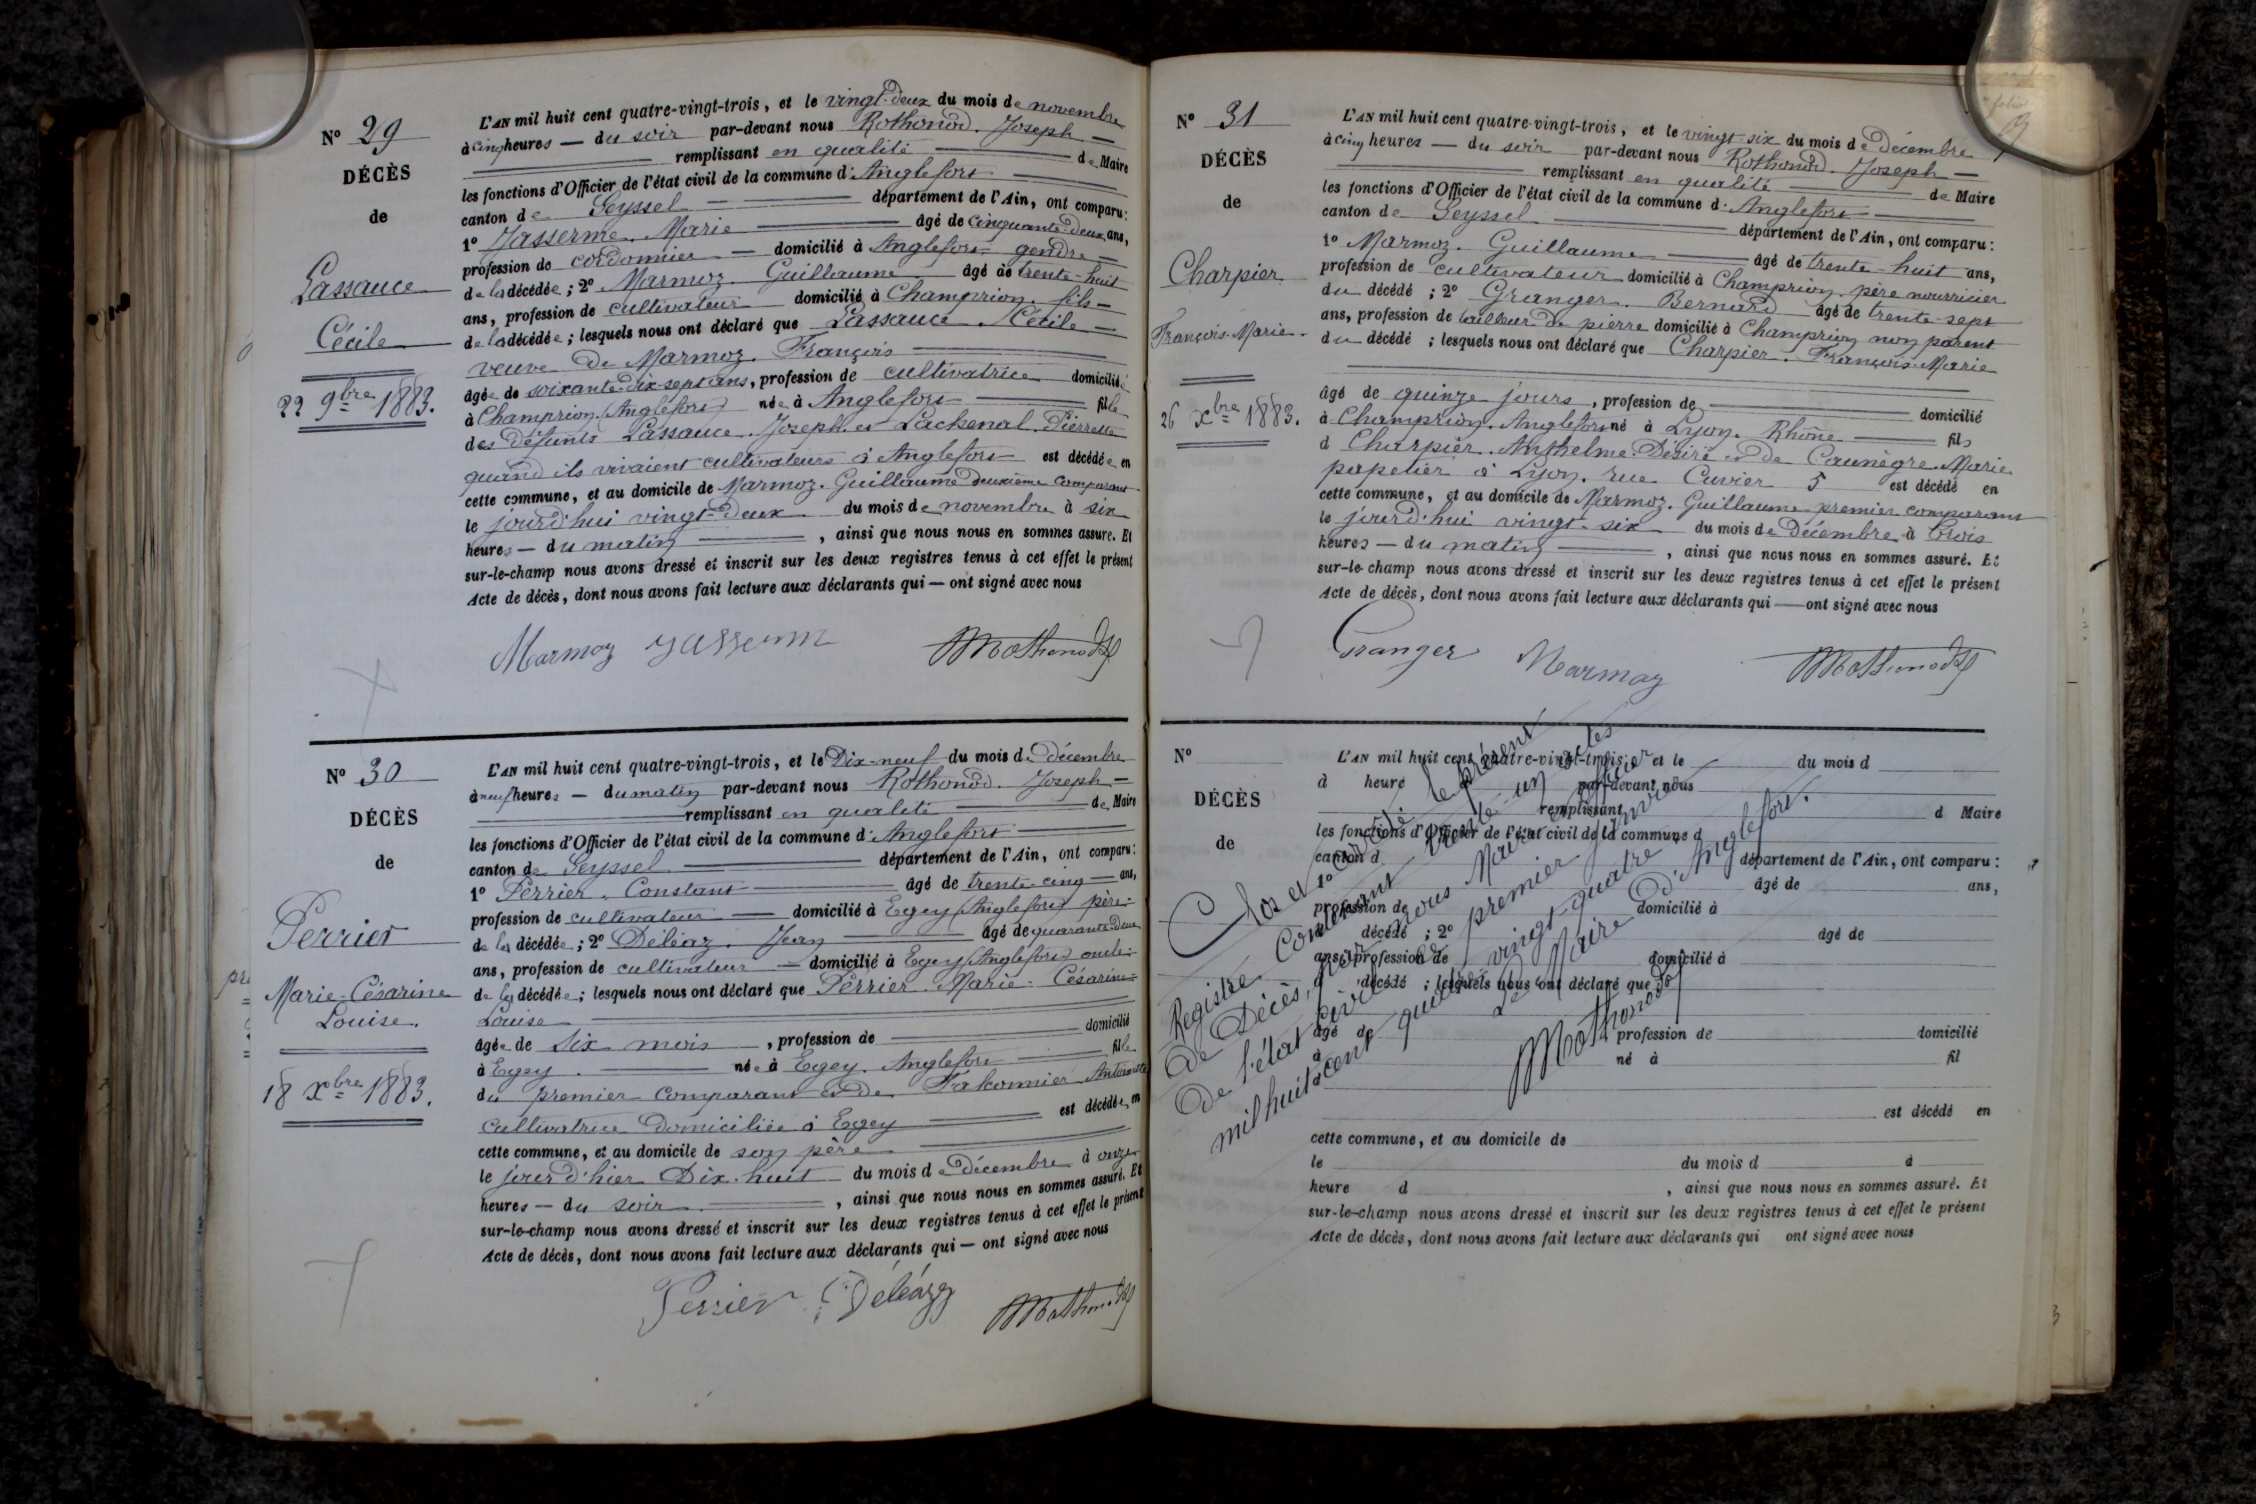 N° 29
DÉCÈS
de
Lassauce
Cécile
22 9bre 1883.
L'AN mil huit cent quatre-vingt-trois, et le vingt-deux du mois de novembre
à cinq heures — du soir par-devant nous Rothonod. Joseph —
remplissant en qualité de Maire
les fonctions d'Officier de l'état civil de la commune d'Anglefort
canton de Seyssel département de l'Ain, ont comparu:
1° Jasserme. Marie âgé de cinquante-deux ans,
profession de cordonnier — domicilié à Anglefort gendre —
de la décédée; 2° Marmoz. Guillaume âgé de trente-huit
ans, profession de cultivateur domicilié à Champrion. fils —
de la décédée; lesquels nous ont déclaré que Lassauce. Cécile —
veuve de Marmoz. François
âgée de soixante-dix-sept ans, profession de cultivatrice domiciliée
à Champrion (Anglefort) née à Anglefort fille
des défunts Lassauce. Joseph et Lachenal. Pierrette
quand ils vivaient cultivateurs à Anglefort est décédée en
cette commune, et au domicile de Marmoz. Guillaume deuxième comparant
le jourd'hui vingt-deux du mois de novembre à six
heures — du matin, ainsi que nous nous en sommes assuré. Et
sur-le-champ nous avons dressé et inscrit sur les deux registres tenus à cet effet le présent
Acte de décès, dont nous avons fait lecture aux déclarants qui — ont signé avec nous
Marmoz
N° 30
DÉCÈS
de
Perrier
Marie-Césarine
Louise.
18 Xbre 1883.
L'AN mil huit cent quatre-vingt-trois, et le Dix-neuf du mois de décembre
à neuf heures — du matin par-devant nous Rothonod. Joseph —
remplissant en qualité de Maire
les fonctions d'Officier de l'état civil de la commune d'Anglefort
canton de Seyssel département de l'Ain, ont comparu:
1° Perrier. Constant âgé de trente-cinq — ans,
profession de cultivateur — domicilié à Egey (Anglefort) père
de la décédée; 2° Déléaz. Jean âgé de quarante-deux
ans, profession de cultivateur — domicilié à Egey (Anglefort) oncle
de la décédée; lesquels nous ont déclaré que Perrier. Marie-Césarine
Louise
âgée de six mois, profession de domicilié
à Egey. née à Egey. Anglefort fille
du premier comparant et de Falconnier Antoinette
cultivatrice domiciliée à Egey est décédée en
cette commune, et au domicile de son père
le jour d'hier Dix-huit du mois de décembre à onze
heures — du soir, ainsi que nous nous en sommes assuré. Et
sur-le-champ nous avons dressé et inscrit sur les deux registres tenus à cet effet le présent
Acte de décès, dont nous avons fait lecture aux déclarants qui — ont signé avec nous
Perrier Déléaz
N° 31
DÉCÈS
de
Charpier
François-Marie.
26 Xbre 1883.
L'AN mil huit cent quatre-vingt-trois, et le vingt-six du mois de décembre
à cinq heures — du soir par-devant nous Rothonod. Joseph —
remplissant en qualité de Maire
les fonctions d'Officier de l'état civil de la commune d'Anglefort
canton de Seyssel département de l'Ain, ont comparu:
1° Marmoz. Guillaume âgé de trente-huit ans,
profession de cultivateur domicilié à Champrion. père nourricier
du décédé; 2° Granger. Bernard âgé de trente-sept
ans, profession de tailleur de pierre domicilié à Champrion non parent
du décédé; lesquels nous ont déclaré que Charpier. François-Marie
âgé de quinze jours, profession de domicilié
à Champrion. Anglefort né à Lyon. Rhône fils
d Charpier. Anthelme-Désiré et de Caunègre. Marie
papetier à Lyon. rue Cuvier 5 est décédé en
cette commune, et au domicile de Marmoz. Guillaume premier comparant
le jourd'hui vingt-six du mois de décembre à trois
heures — du matin, ainsi que nous nous en sommes assuré. Et
sur-le-champ nous avons dressé et inscrit sur les deux registres tenus à cet effet le présent
Acte de décès, dont nous avons fait lecture aux déclarants qui — ont signé avec nous
Granger Marmoz
N°
DÉCÈS
de
L'AN mil huit cent quatre-vingt-trois, et le du mois d
à heure par-devant nous
remplissant d Maire
les fonctions d'Officier de l'état civil de la commune d
canton d département de l'Ain, ont comparu:
1° âgé de ans,
profession de domicilié à
décédé; 2° âgé de
ans, profession de domicilié à
décédé; lesquels nous ont déclaré que
âgé de profession de domicilié
à né à fil
est décédé en
cette commune, et au domicile de
le du mois d à
heure d, ainsi que nous nous en sommes assuré. Et
sur-le-champ nous avons dressé et inscrit sur les deux registres tenus à cet effet le présent
Acte de décès, dont nous avons fait lecture aux déclarants qui ont signé avec nous
Clos et arrêté le présent
Registre contenant trente-un actes
de Décès, par nous Maire officier
de l'état civil le premier janvier
mil huit cent quatre vingt-quatre
Le Maire d'Anglefort.